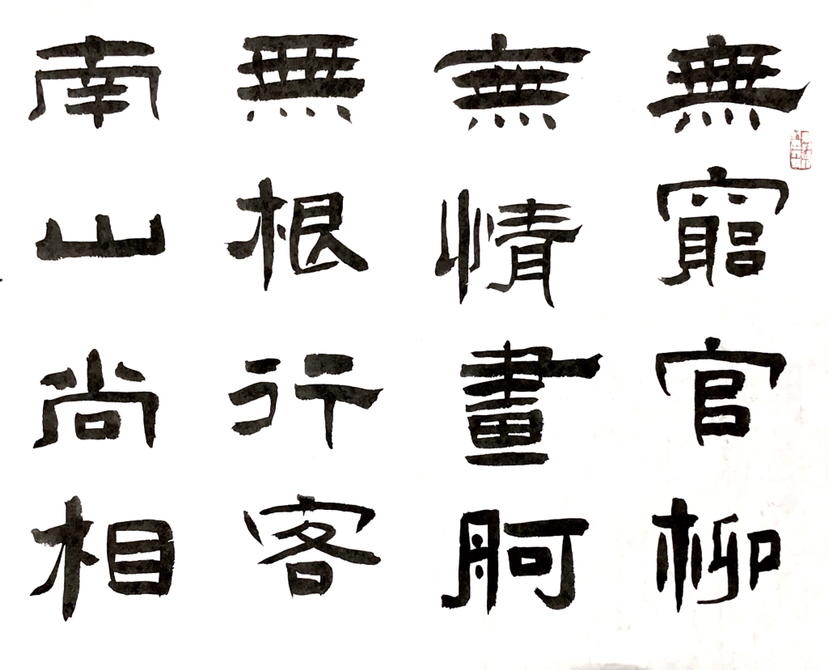 無窮官柳
無情畫舸
無根行客
南山尚相